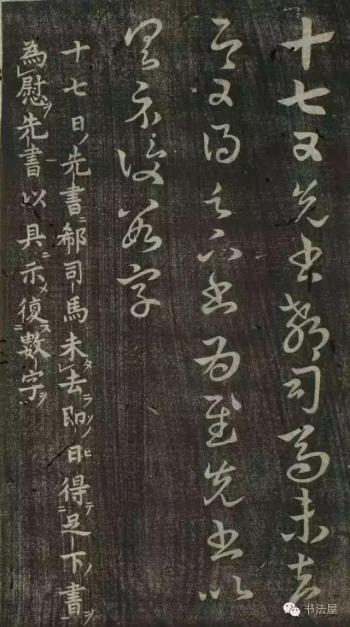 十七日先書郗司馬未去
即日得足下書為慰先書以
具示復數字
十七日ノ先書ニ郗司馬未タ去即日ヒ得テ足下ノ書ヲ
為慰ヲ先書以具ニ示メ復ス數字ヲ
书法屋